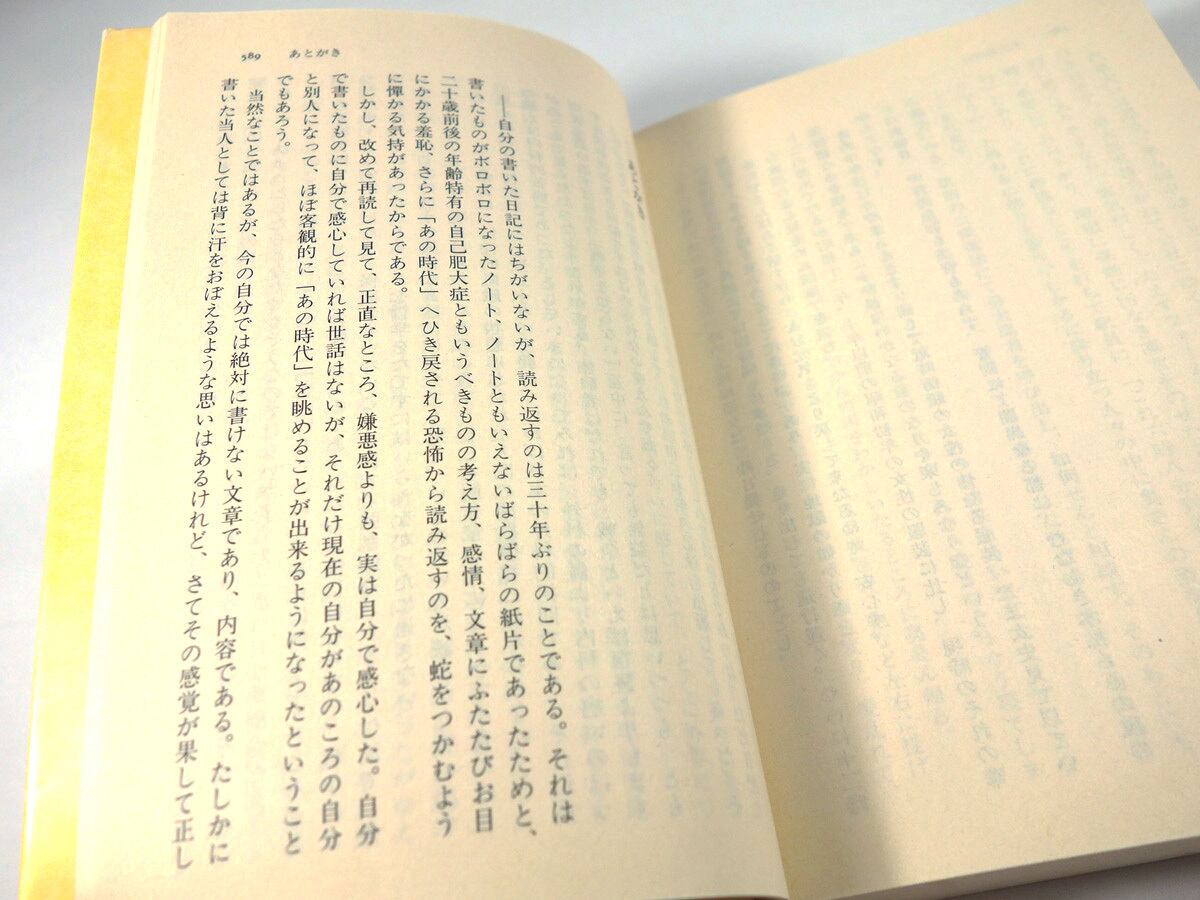 589　あとがき
――自分の書いた日記にはちがいないが、読み返すのは三十年ぶりのことである。それは
書いたものがボロボロになったノート、ノートともいえないばらばらの紙片であったためと、
二十歳前後の年齢特有の自己肥大症ともいうべきものの考え方、感情、文章にふたたびお目
にかかる羞恥、さらに「あの時代」へひき戻される恐怖から読み返すのを、蛇をつかむよう
に憚かる気持があったからである。
しかし、改めて再読して見て、正直なところ、嫌悪感よりも、実は自分で感心した。自分
で書いたものに自分で感心していれば世話はないが、それだけ現在の自分があのころの自分
と別人になって、ほぼ客観的に「あの時代」を眺めることが出来るようになったということ
でもあろう。
当然なことではあるが、今の自分では絶対に書けない文章であり、内容である。たしかに
書いた当人としては背に汗をおぼえるような思いはあるけれど、さてその感覚が果して正し